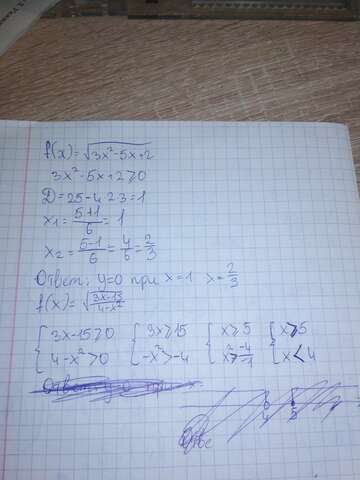 f(x)=√3x²-5x+2
3x²-5x+2⩾0
D=25-4·2·3=1
x₁=(5+1)/6=1
x₂=(5-1)/6=4/6=2/3
Ответ: y=0 при x=1 x=2/3
f(x)=√(3x-15)/(4-x²)
{3x-15⩾0 {3x⩾15 {x⩾5 {x⩾5
{4-x²>0 {-x²>-4 {x²>-4/-1 {x<4